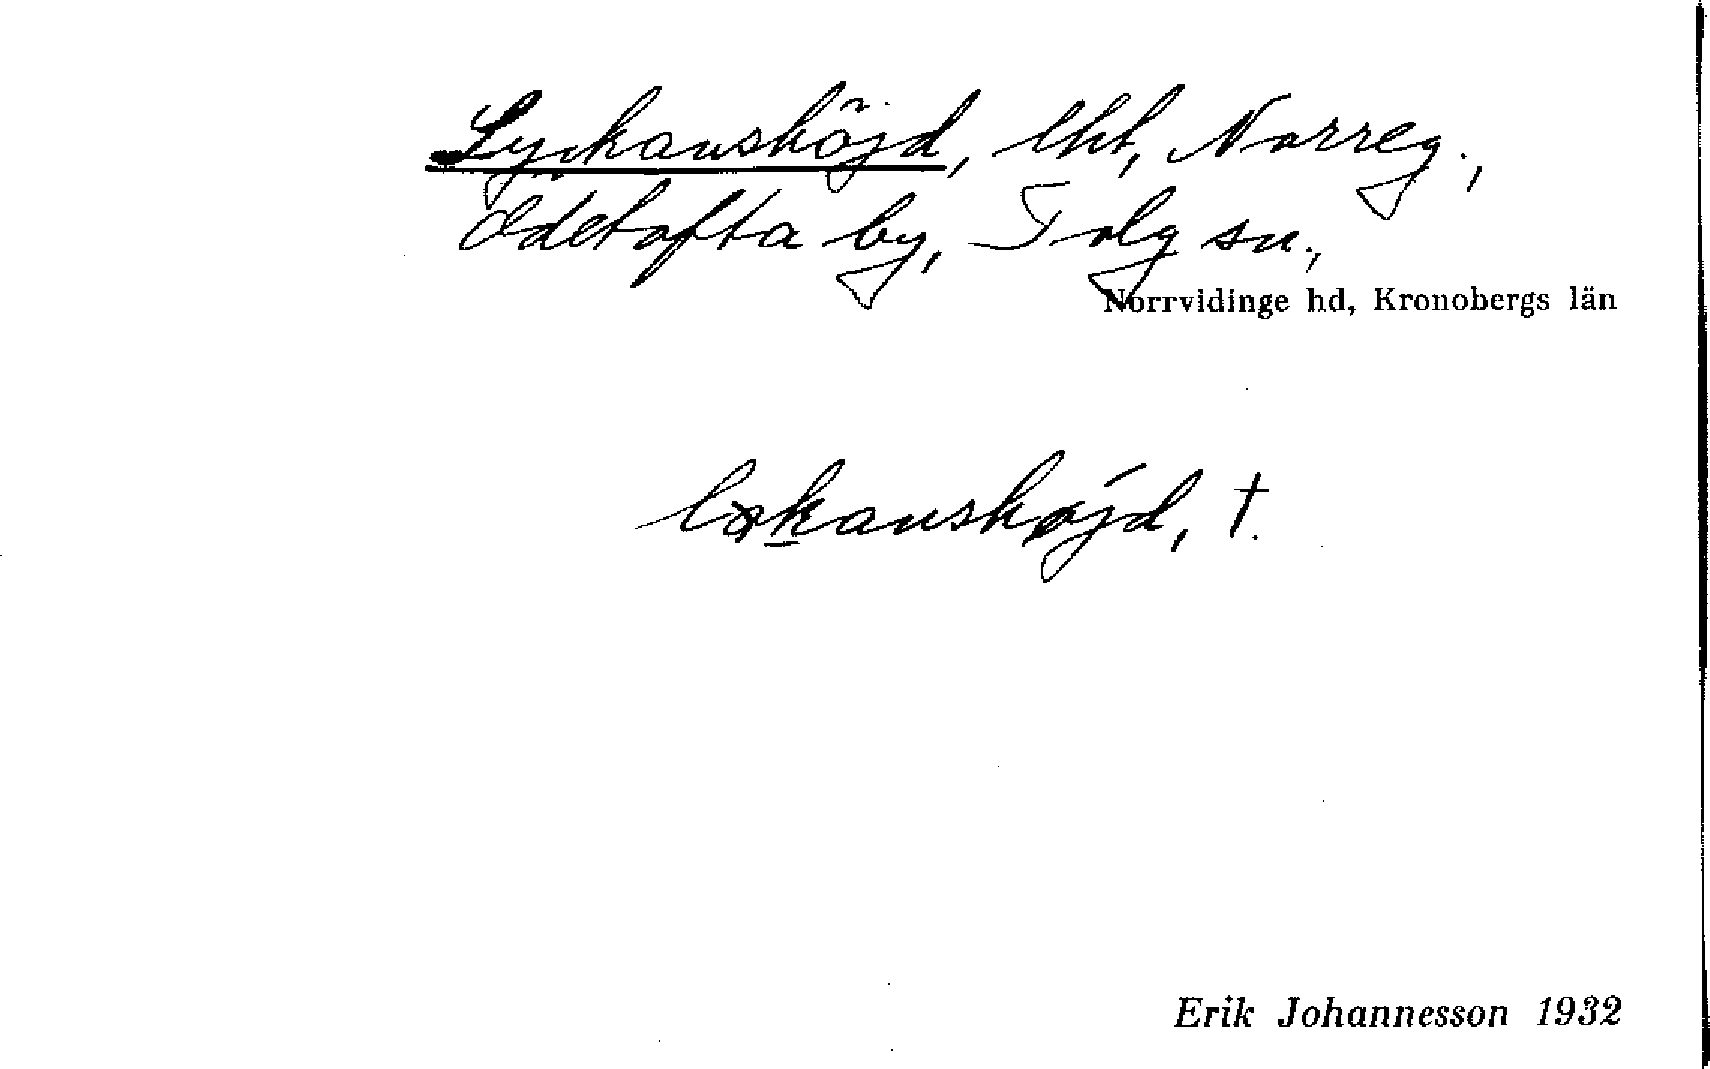 Lyckanshöjd, lht, Norreg.,
Ödetofta by, Tolg sn.,
Norrvidinge hd, Kronobergs län
†.
Erik Johannesson 1932